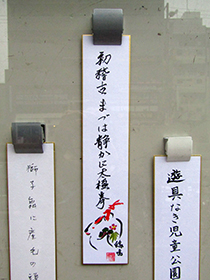 初稽古まづは静かに太極拳
遊具なき児童公園
獅子舞に産毛の頭